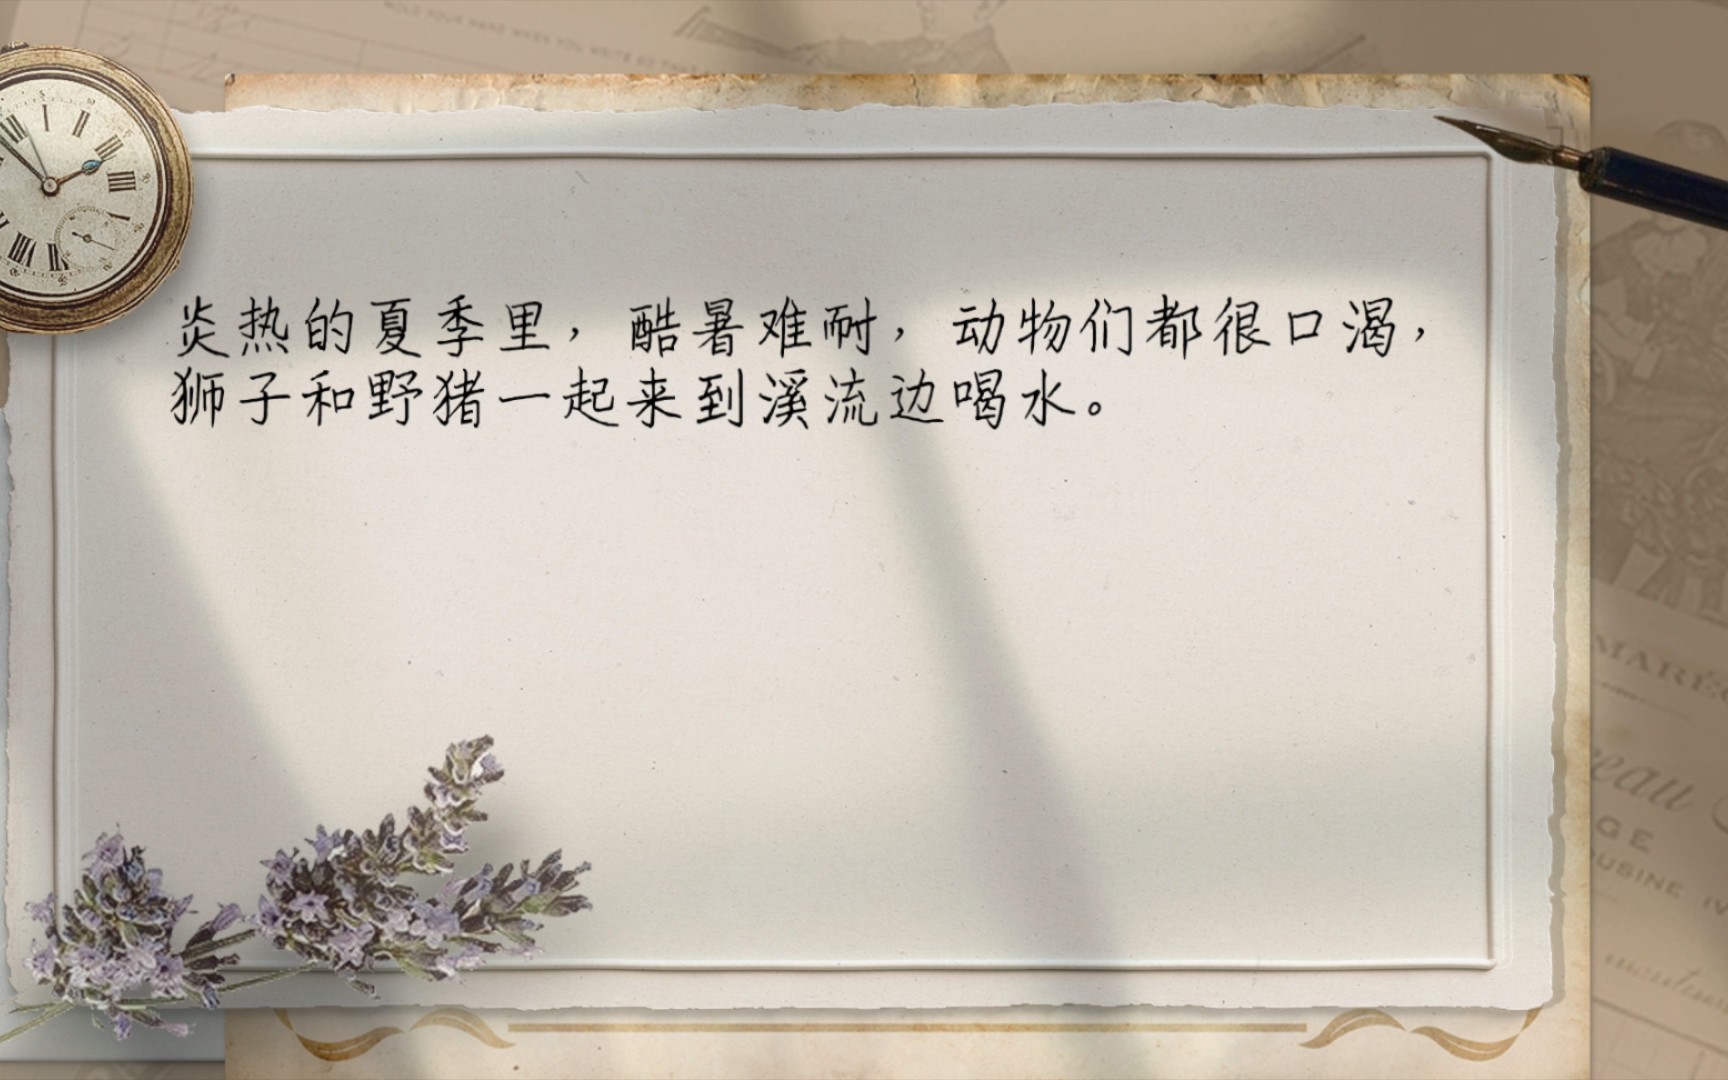 炎热的夏季里，酷暑难耐，动物们都很口渴，
狮子和野猪一起来到溪流边喝水。